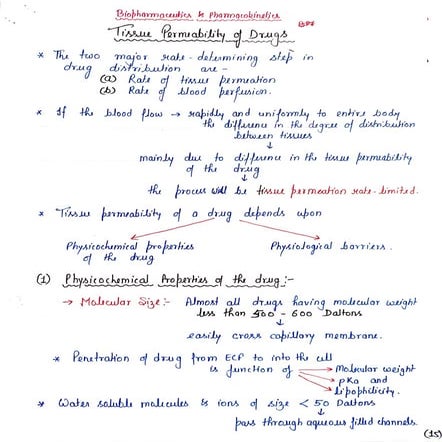 Biopharmaceutics & Pharmacokinetics
BP7
Tissue Permeability of Drugs
* The two major rate-determining step in
drug distribution are -
(a) Rate of tissue permeation
(b) Rate of blood perfusion.
* If the blood flow → rapidly and uniformly to entire body
the difference in the degree of distribution
between tissues
↓
mainly due to difference in the tissue permeability
of the drug
↓
the process will be tissue permeation rate-limited.
* Tissue permeability of a drug depends upon
Physicochemical properties
of the drug
Physiological barriers.
(1) Physicochemical Properties of the drug :-
→ Molecular Size:- Almost all drugs having molecular weight
less than 500 - 600 Daltons
↓
easily cross capillary membrane.
* Penetration of drug from ECF to into the cell
is function of → Molecular weight
→ pKa and
→ lipophilicity.
* Water soluble molecules & ions of size < 50 Daltons
↓
pass through aqueous filled channels.
(15)